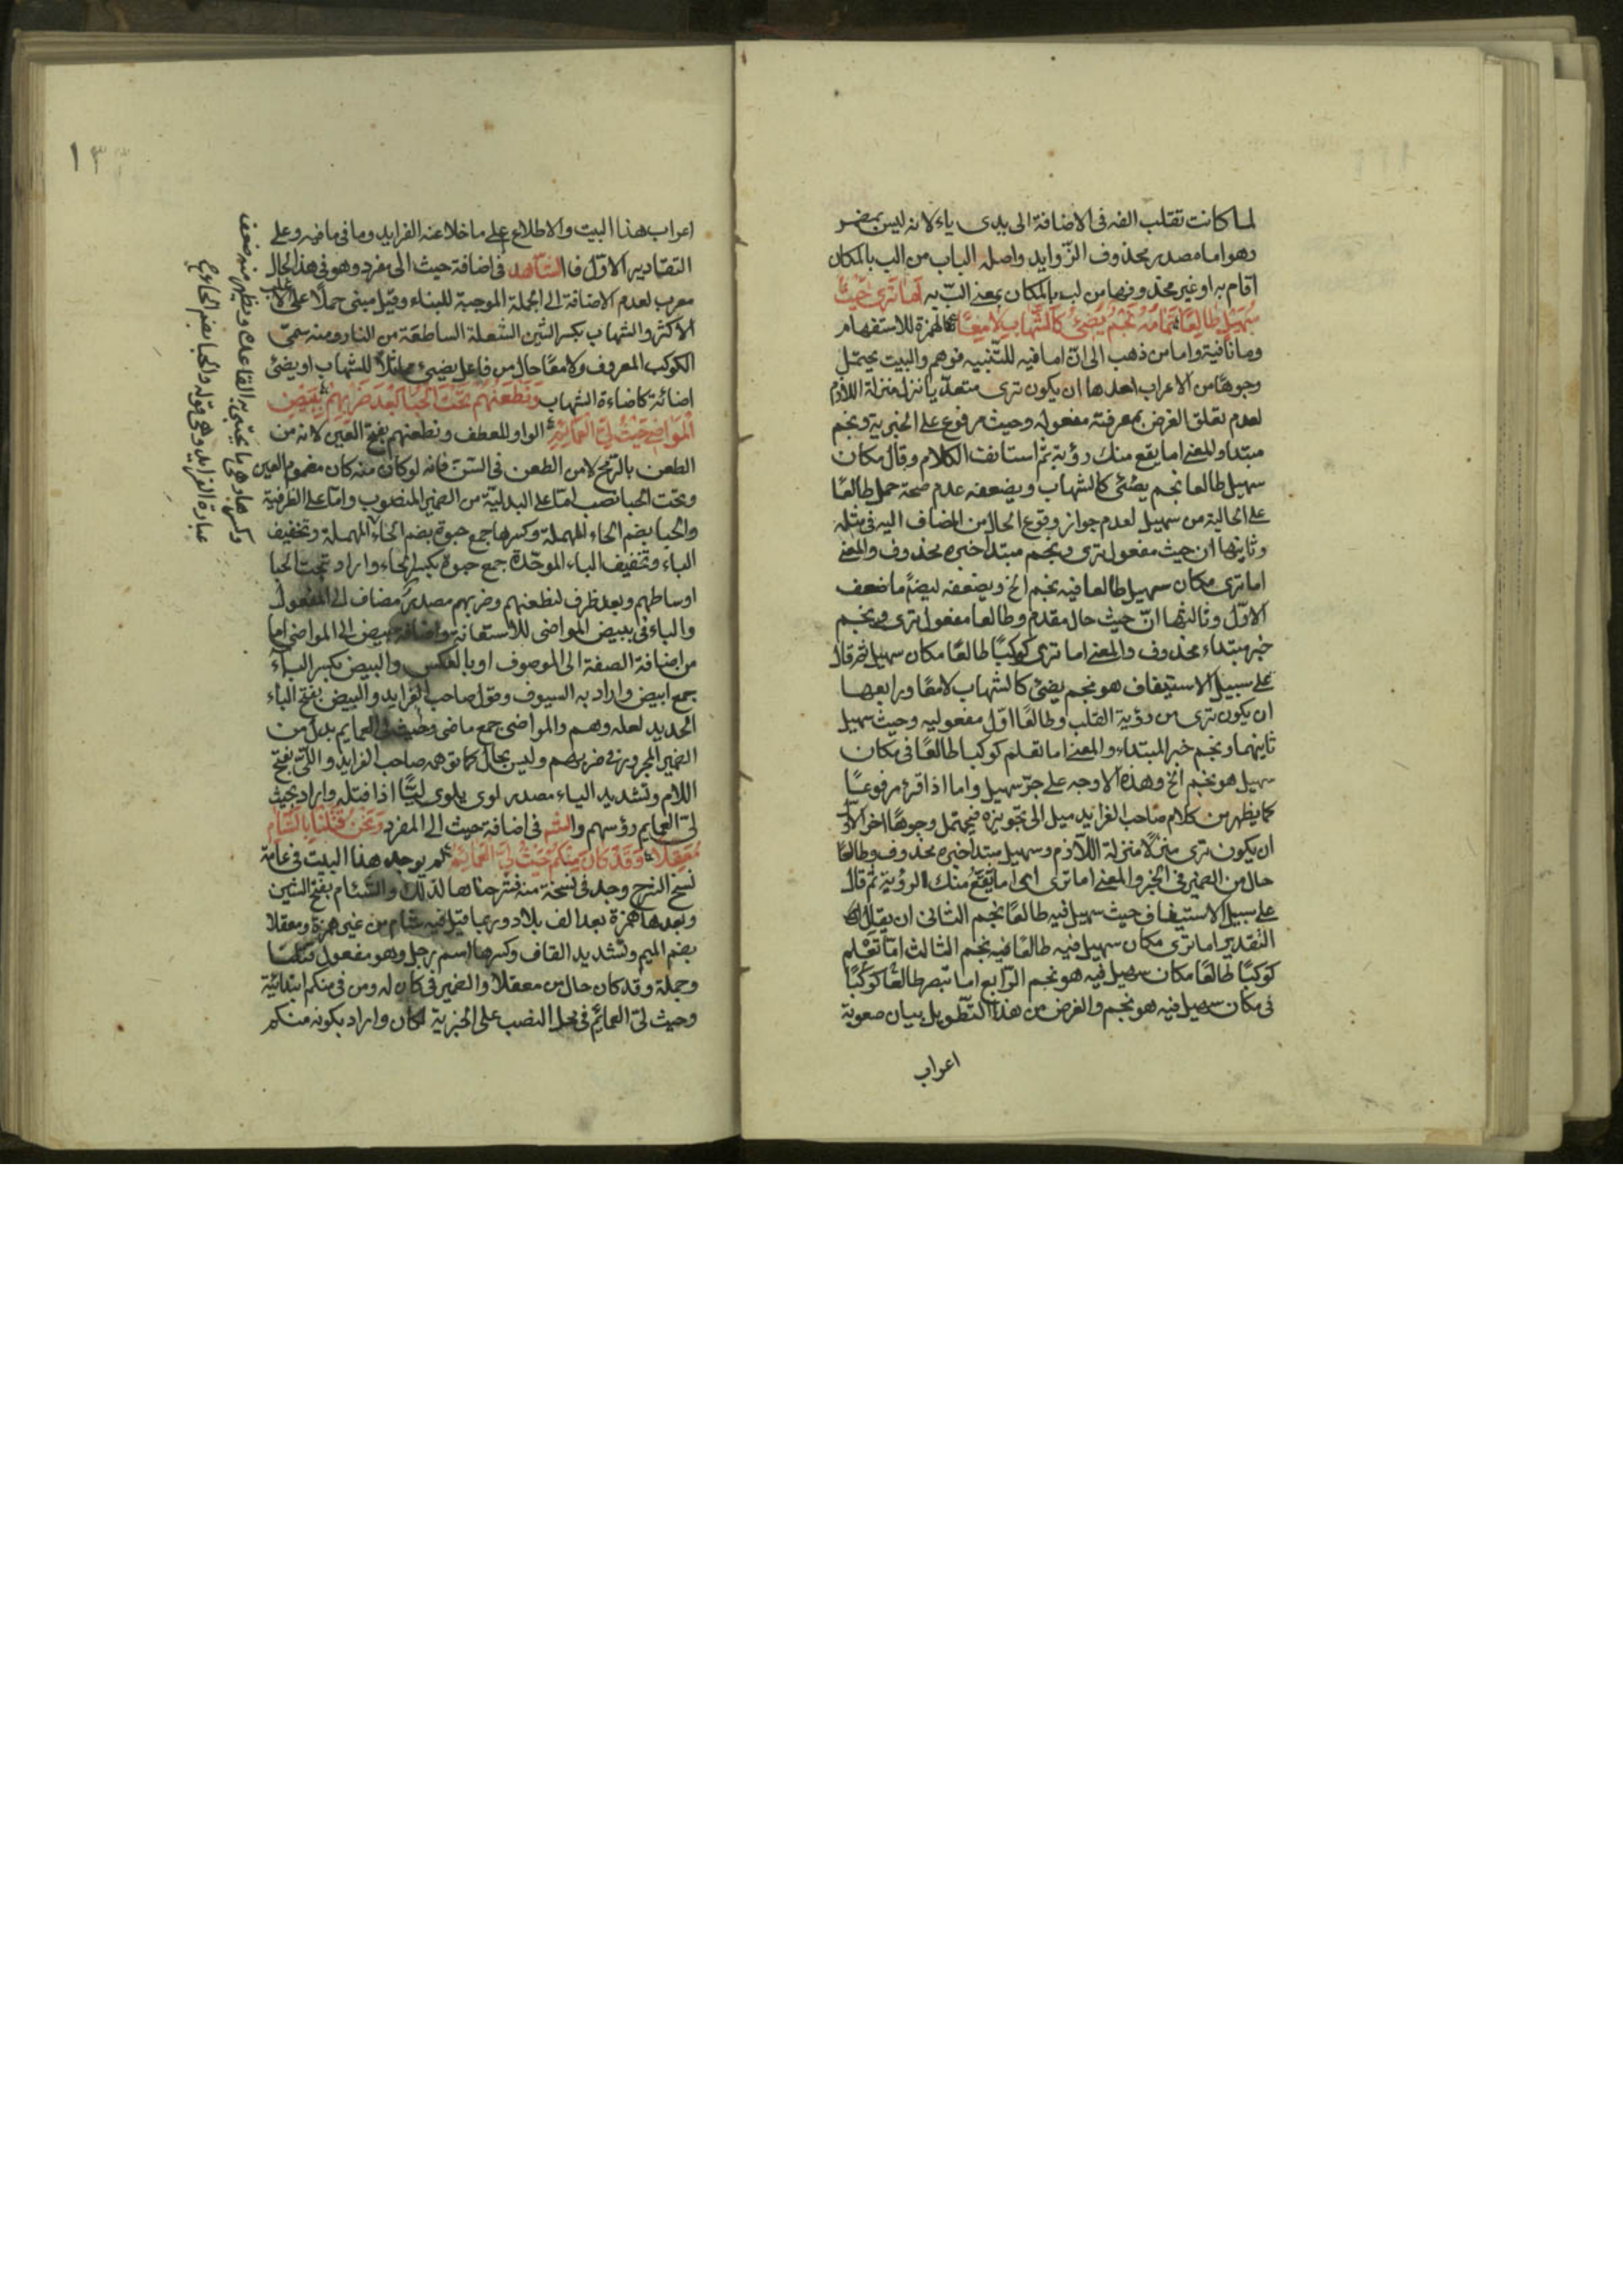 لما كانت تقلب الفه فى الاضافة الى يدى ياء لانه ليس بمضمر
وهو اما مصدر محذوف الزوايد واصله الباب من الب بالمكان
اقام به او غير محذوفها من لب بالمكان بمعنى الب به اما ترى حيث
سهيل طالعا نجم يضئ كالشهاب لامعا الهمزة للاستفهام
وما نافية واما من ذهب الى ان اما فيه للتنبيه فوهم والبيت يحتمل
وجوها من الاعراب احدها ان يكون ترى متعديا نزل منزلة اللازم
لعدم تعلق الغرض بمعرفة مفعوله وحيث مرفوع على الخبرية ونجم
مبتدا والمعنى اما يقع منك رؤية ثم استانف الكلام وقال مكان
سهيل طالعا نجم يضئى كالشهاب ويضعفه عدم صحة حمل طالعًا
على الحالية من سهيل لعدم جواز وقوع الحال من المضاف اليه فى مثله
وثانيها ان حيث مفعول ترى ونجم مبتدا خبره محذوف والمعنى
اما ترى مكان سهيل طالعا فيه نجم الخ ويضعفه ايضًا ما ضعف
الاوّل وثالثها انّ حيث حال مقدم وطالعا مفعول ترى ونجم
خبر مبتداء محذوف والمعنى اما ترى كوكبًا طالعًا مكان سهيل ثم قال
على سبيل الاستيفاف هو نجم يضئ كالشهاب لامعًا ورابعها
ان يكون ترى من رؤية القلب وطالعًا اوّل مفعوليه وحيث سهيل
ثانيهما ونجم خبر المبتداء والمعنى اما تعلم كوكبا طالعًا فى مكان
سهيل هو نجم الخ وهذه الاوجه على جرّ سهيل واما اذا قرئ مرفوعًا
كما يظهر من كلام صاحب الفرايد ميل الى تجويزه فيحتمل وجوهًا اخر الاوّل
ان يكون ترى منزلًا منزلة اللازم وسهيل مبتدا خبره محذوف وطالعا
حال من الضمير فى الخبر والمعنى اما ترى اى اما يقع منك الرؤية ثم قال
على سبيل الاستيفاف حيث سهيل فيه طالعًا نجم الثانى ان
التقدير اما ترى مكان سهيل فيه طالعًا فيه نجم الثالث اما تعلم
كوكبًا طالعًا مكان سهيل فيه هو نجم الرّابع اما تبصر طالعًا كوكبًا
فى مكان سهيل فيه هو نجم والغرض من هذا التطويل بيان صعوبة
اعراب
١٣
اعراب هذا البيت والاطلاع على ما خلا عنه الفرايد وما فى ما فيه وعلى
التقادير الاوّل فالشاهد فى اضافة حيث الى مفرد وهو فى هذا الحال
معرب لعدم الاضافة الى الجملة الموجبة للبناء وقيل مبنى حملًا على
الاكثر والشهاب بكسر الشين الشعلة الساطعة من النار ومنه سمىّ
الكوكب المعروف ولامعًا حال من فاعل يضيئ مماثلًا للشهاب او يضئ
اضائة كاضاءة الشهاب ونطعنهم تحت الحبا بعد ضربهم ببيض
المواضى حيث لىّ العمائم الواو للعطف ونطعنهم بفتح العين لانه من
الطعن بالرّمح لا من الطعن فى السّن فانه لو كان منه كان مضموم العين
وتحت الحبا نصب امّا على البدلية من الضمير المنصوب وامّا على الظرفية
والحبا بضم الحاء المهملة وكسرها جمع حبوة بضم الحاء المهملة وتخفيف
الباء وتخفيف الباء الموحّدة جمع حبوة بكسر الحاء واراد بتحت الحبا
اوساطهم وبعد ظرف لنطعنهم وضربهم مصدر مضاف الى المفعول
والباء فى ببيض المواضى للاستعانة واضافة بيض الى المواضى اما
من اضافة الصفة الى الموصوف او بالعكس والبيض بكسر الباء
جمع ابيض واراد به السيوف وقول صاحب الفرايد والبيض بفتح الباء
الحديد لعله وهم والمواضى جمع ماضى وحيث لىّ العمايم بدل من
الضمير المجرور فى ضربهم وليس بحال كما توهمه صاحب الفرايد واللىّ بفتح
اللام وتشديد الياء مصدر لوى يلوى ليًّا اذا فتله واراد بحيث
لىّ العمايم رؤسهم والشاهد فى اضافة حيث الى المفرد ونحن قتلنا بالشام
معقلا وقد كان منكم حيث لىّ العمائم لم يوجد هذا البيت فى عامة
نسخ الشرح وجد فى نسخة منه فشرحناها لذلك والشئام بفتح الشين
وبعدها همزة بعد الف بلاد وربما قيل فيه شام من غير همزة ومعقلا
بضم الميم وتشديد القاف وكسرها اسم رجل وهو مفعول قتلنا
وجملة وقد كان حال من معقلا والضمير فى كان له ومن فى منكم ابتدائية
وحيث لىّ العمائم فى محل النصب على الخبرية لكان واراد بكونه منكم
عبارة الفرايد وهى قوله والحبا بضم الحاء جمع